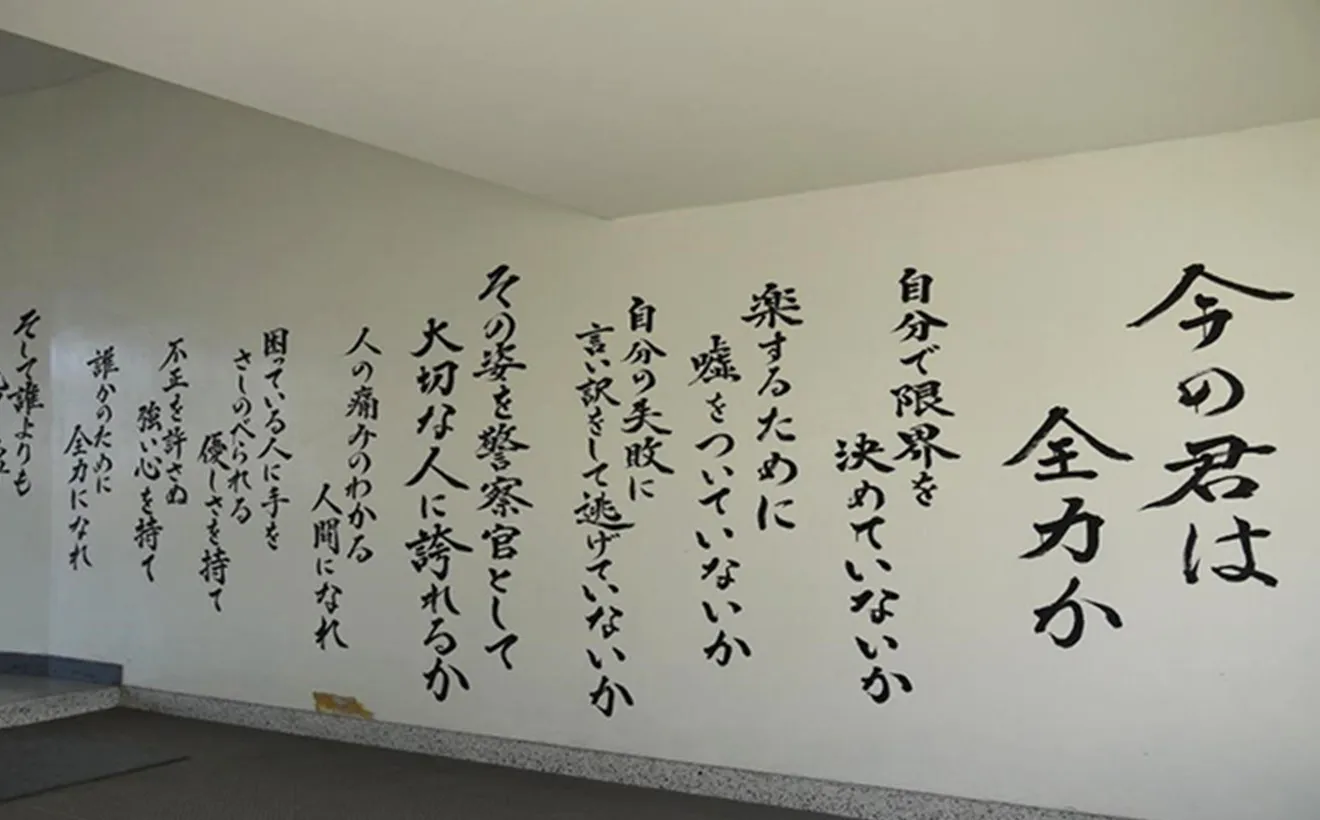 今の君は
全力か
自分で限界を
決めていないか
楽するために
嘘をついていないか
自分の失敗に
言い訳をして逃げていないか
その姿を警察官として
大切な人に誇れるか
人の痛みのわかる
人間になれ
困っている人に手を
さしのべられる
優しさを持て
不正を許さぬ
強い心を持て
誰かのために
全力になれ
そして誰よりも